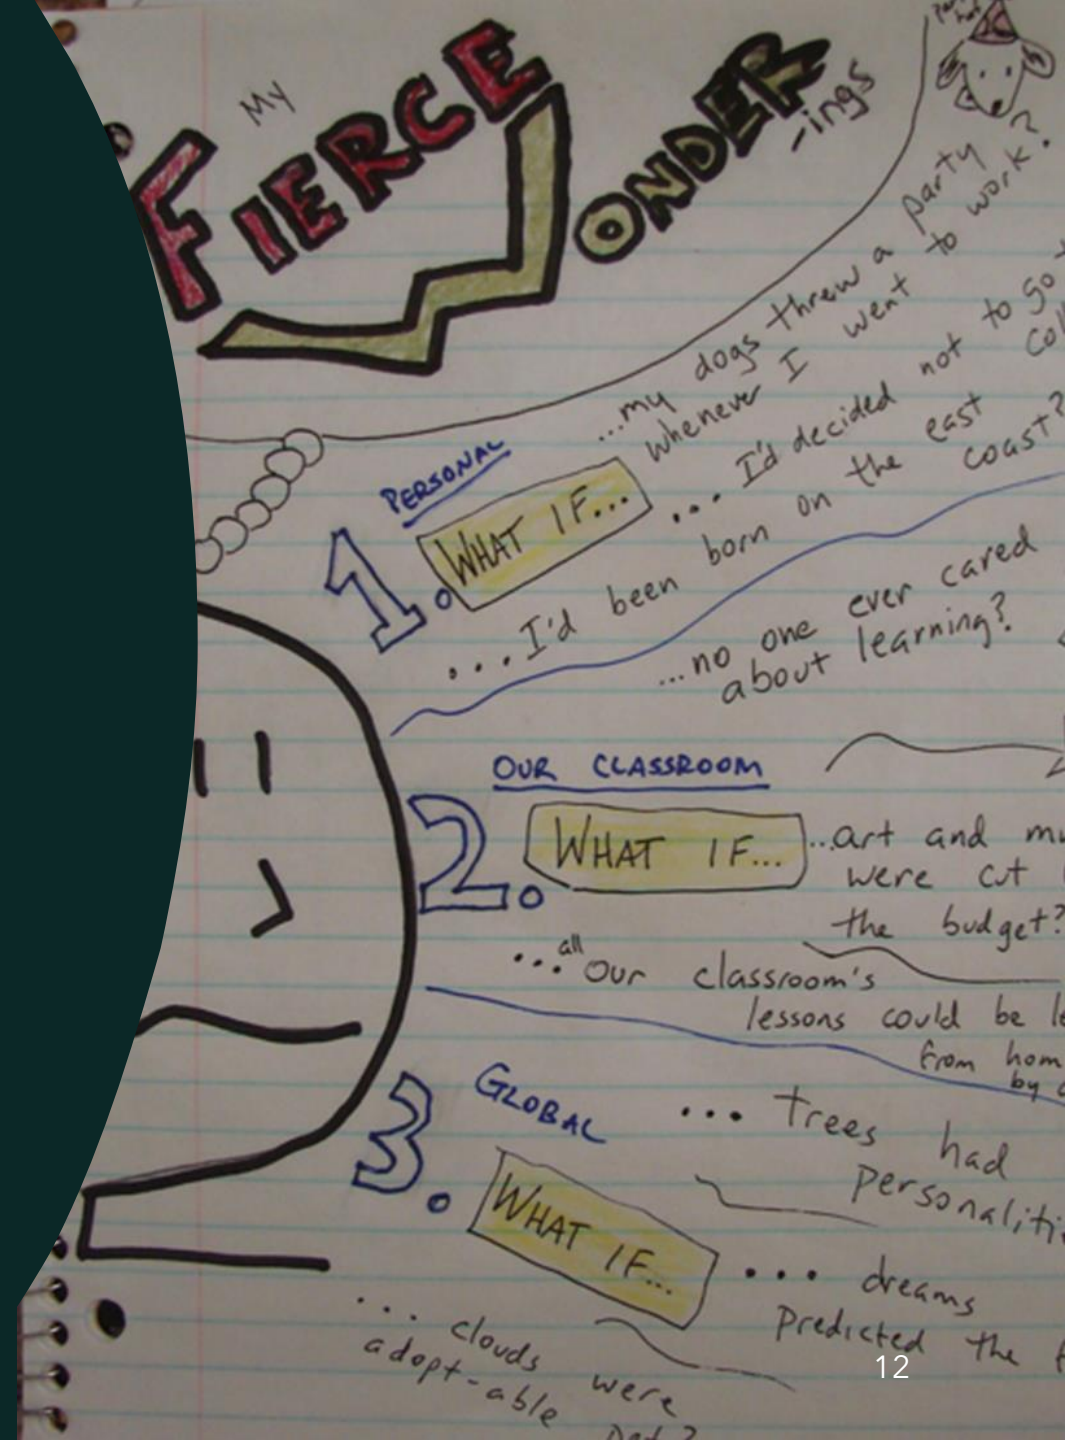 My
FIERCE
WONDER
-ings
party
...my dogs threw a party
whenever I went to work?
PERSONAL
1. WHAT IF...
... I'd decided not to go
... I'd been born on the east
coast?
...no one ever cared
about learning?
OUR CLASSROOM
2. WHAT IF...
...art and
were cut
the budget?
...all our classroom's
lessons could be
from
by
GLOBAL
3. WHAT IF...
... trees had
... dreams
predicted the
... clouds were
adopt-able
12